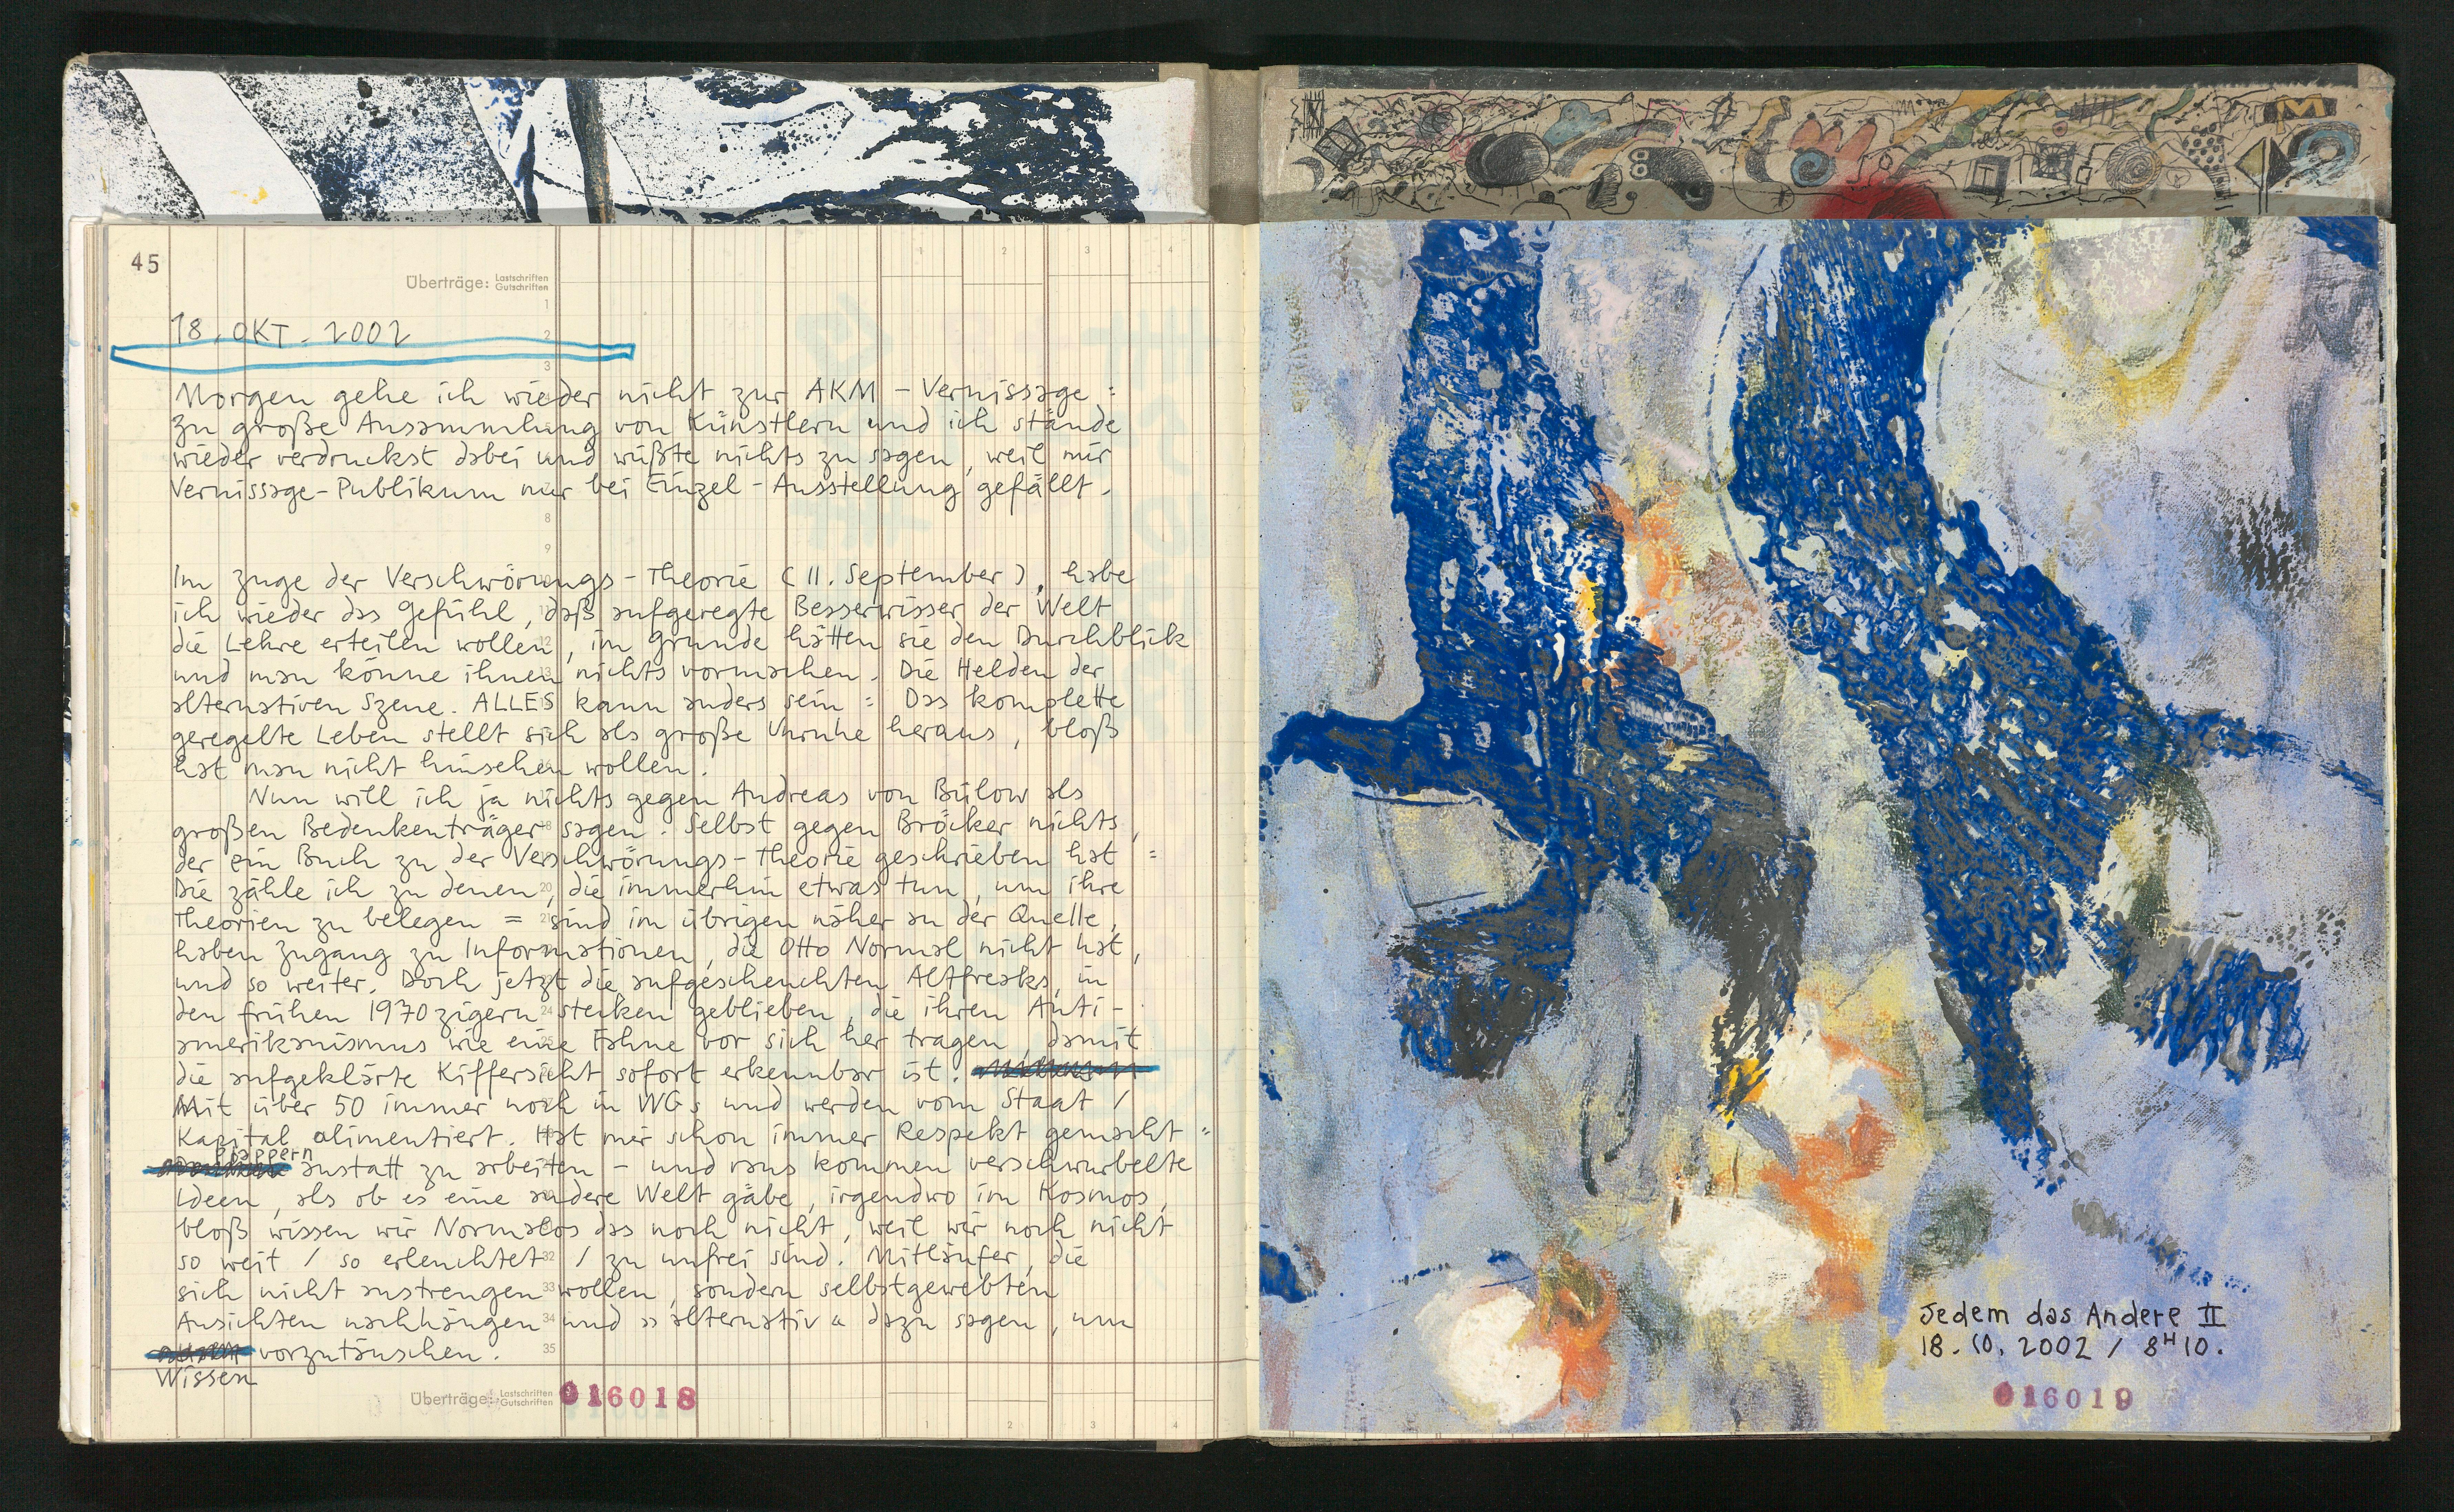 45
Überträge: Lastschriften
Gutschriften
1 2 3 4
18. OKT. 2002
Morgen gehe ich wieder nicht zur AKM-Vernissage:
Zu große Ansammlung von Künstlern und ich stände
wieder verdruckst dabei und wüßte nichts zu sagen, weil mir
Vernissage-Publikum nur bei Einzel-Ausstellung gefällt.
Im Zuge der Verschwörungs-Theorie (11. September), habe
ich wieder das Gefühl, daß aufgeregte Besserwisser der Welt
die Lehre erteilen wollen, im Grunde hätten sie den Durchblick
und man könne ihnen nichts vormachen. Die Helden der
alternativen Szene. ALLES kann anders sein: Das komplette
geregelte Leben stellt sich als große Unruhe heraus, bloß
hat man nicht hinsehen wollen.
Nun will ich ja nichts gegen Andreas von Bülow als
großen Bedenkenträger sagen. Selbst gegen Bröcker nichts,
der ein Buch zu der Verschwörungs-Theorie geschrieben hat:
Die zähle ich zu denen, die immerhin etwas tun, um ihre
Theorien zu belegen = sind im übrigen näher an der Quelle,
haben Zugang zu Informationen, die Otto Normal nicht hat,
und so weiter. Doch jetzt die aufgescheuchten Altfreaks, in
den frühen 1970zigern stecken geblieben, die ihren Anti-
amerikanismus wie eine Fahne vor sich her tragen, damit
die aufgeklärte Kiffersicht sofort erkennbar ist.
Mit über 50 immer noch in WGs und werden vom Staat /
Kapital alimentiert. Hat mir schon immer Respekt gemacht:
plappern anstatt zu arbeiten - und raus kommen verschwurbelte
Ideen, als ob es eine andere Welt gäbe, irgendwo im Kosmos,
bloß wissen wir Normalos das noch nicht, weil wir noch nicht
so weit / so erleuchtet / zu unfrei sind. Mitläufer, die
sich nicht anstrengen wollen, sondern selbstgewebten
Ansichten nachhängen und »alternativ« dazu sagen, um
Wissen vorzutäuschen.
Überträge: Lastschriften
Gutschriften
016018
1 2 3 4
Jedem das Andere II
18.10.2002 / 8H10.
016019